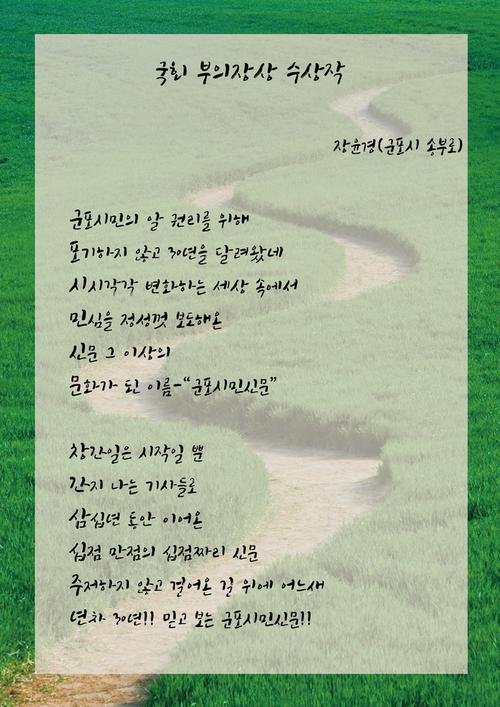 국회 부의장상 수상작
장윤경(군포시 송부로)
군포시민의 알 권리를 위해
포기하지 않고 30년을 달려왔네
시시각각 변화하는 세상 속에서
민심을 정성껏 보도해온
신문 그 이상의
문화가 된 이름-“군포시민신문”
창간일은 시작일 뿐
간지 나는 기사들로
삼십년 동안 이어온
십점 만점의 십점짜리 신문
주저하지 않고 걸어온 길 위에 어느새
년차 30년!! 믿고 보는 군포시민신문!!